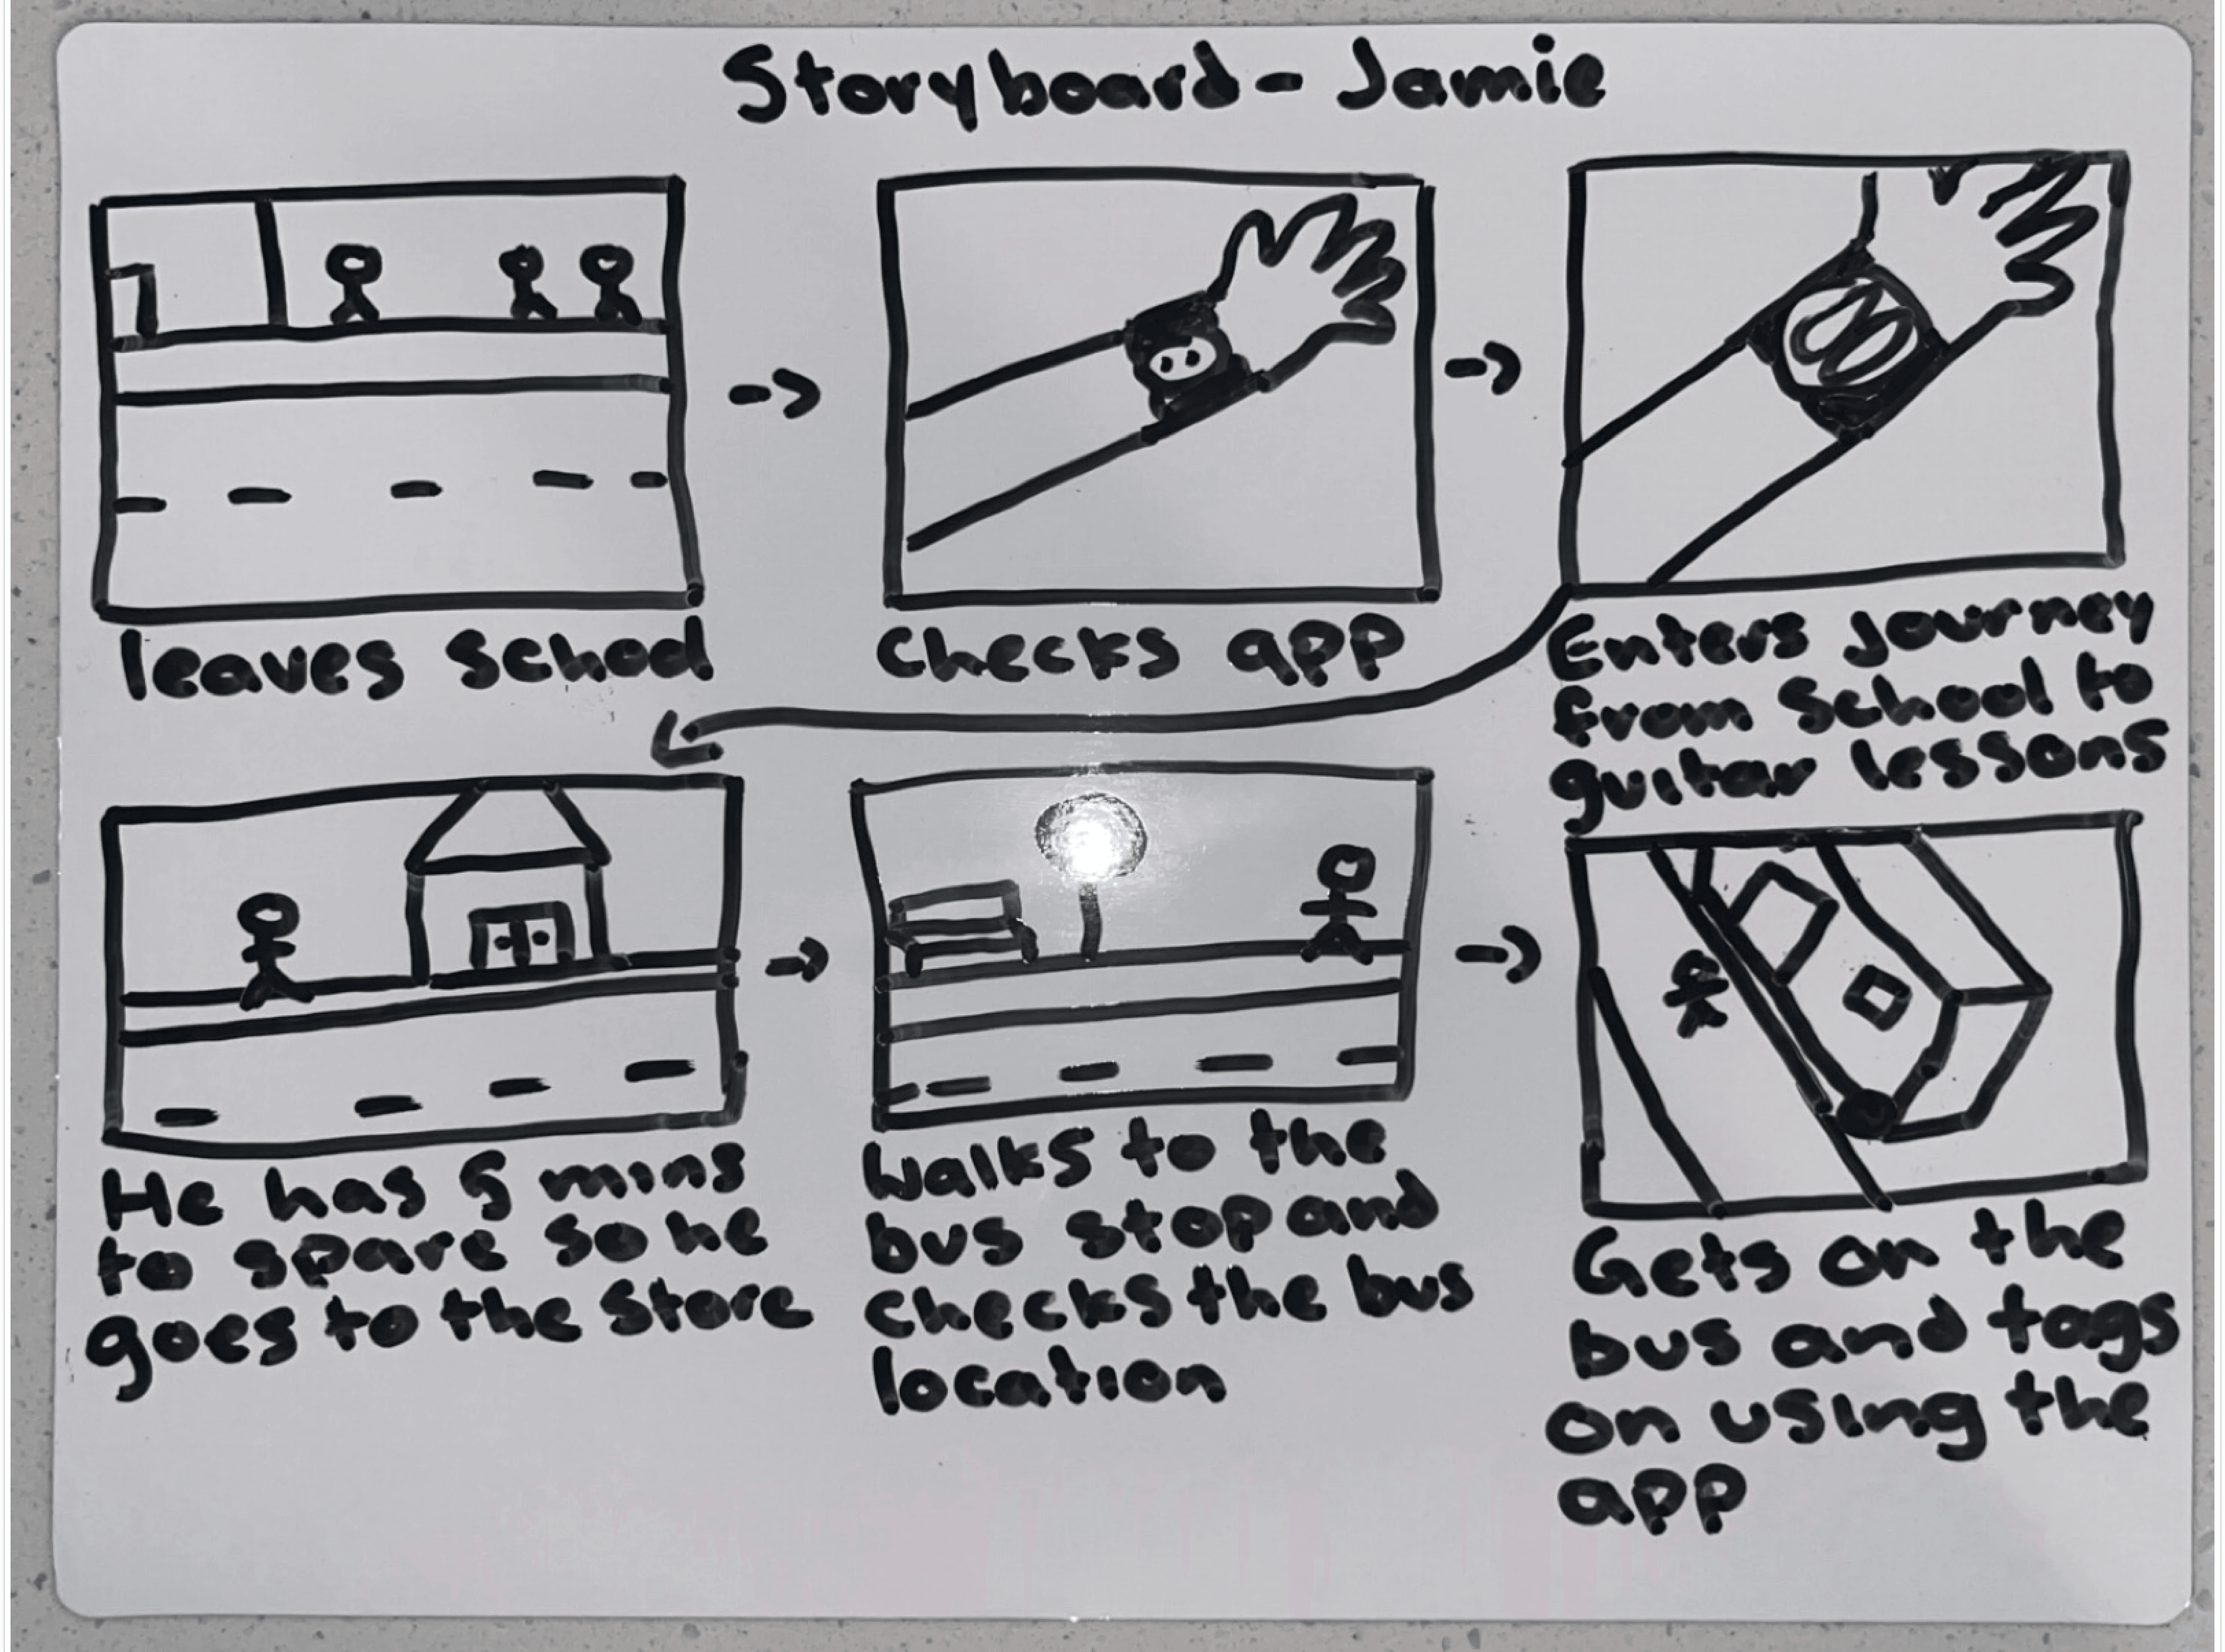 Storyboard - Jamie
leaves school
checks app
Enters journey
from school to
guitar lessons
He has 5 mins
to spare so he
goes to the store
Walks to the
bus stop and
checks the bus
location
Gets on the
bus and tags
on using the
app